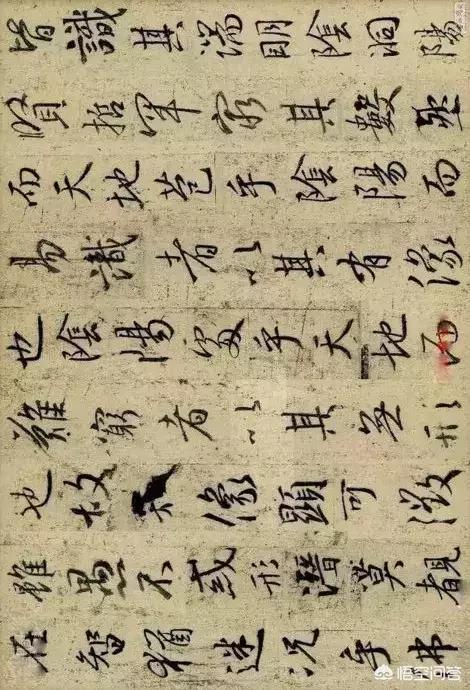 皆識其端明陰洞陽
賢哲罕窮其數然
而天地苞乎陰陽而
易識者以其有像
也陰陽處乎天地而
難窮者以其無形
也故知像顯可徵
雖愚不惑形潛莫覩
在智猶迷況乎佛
悟空问答